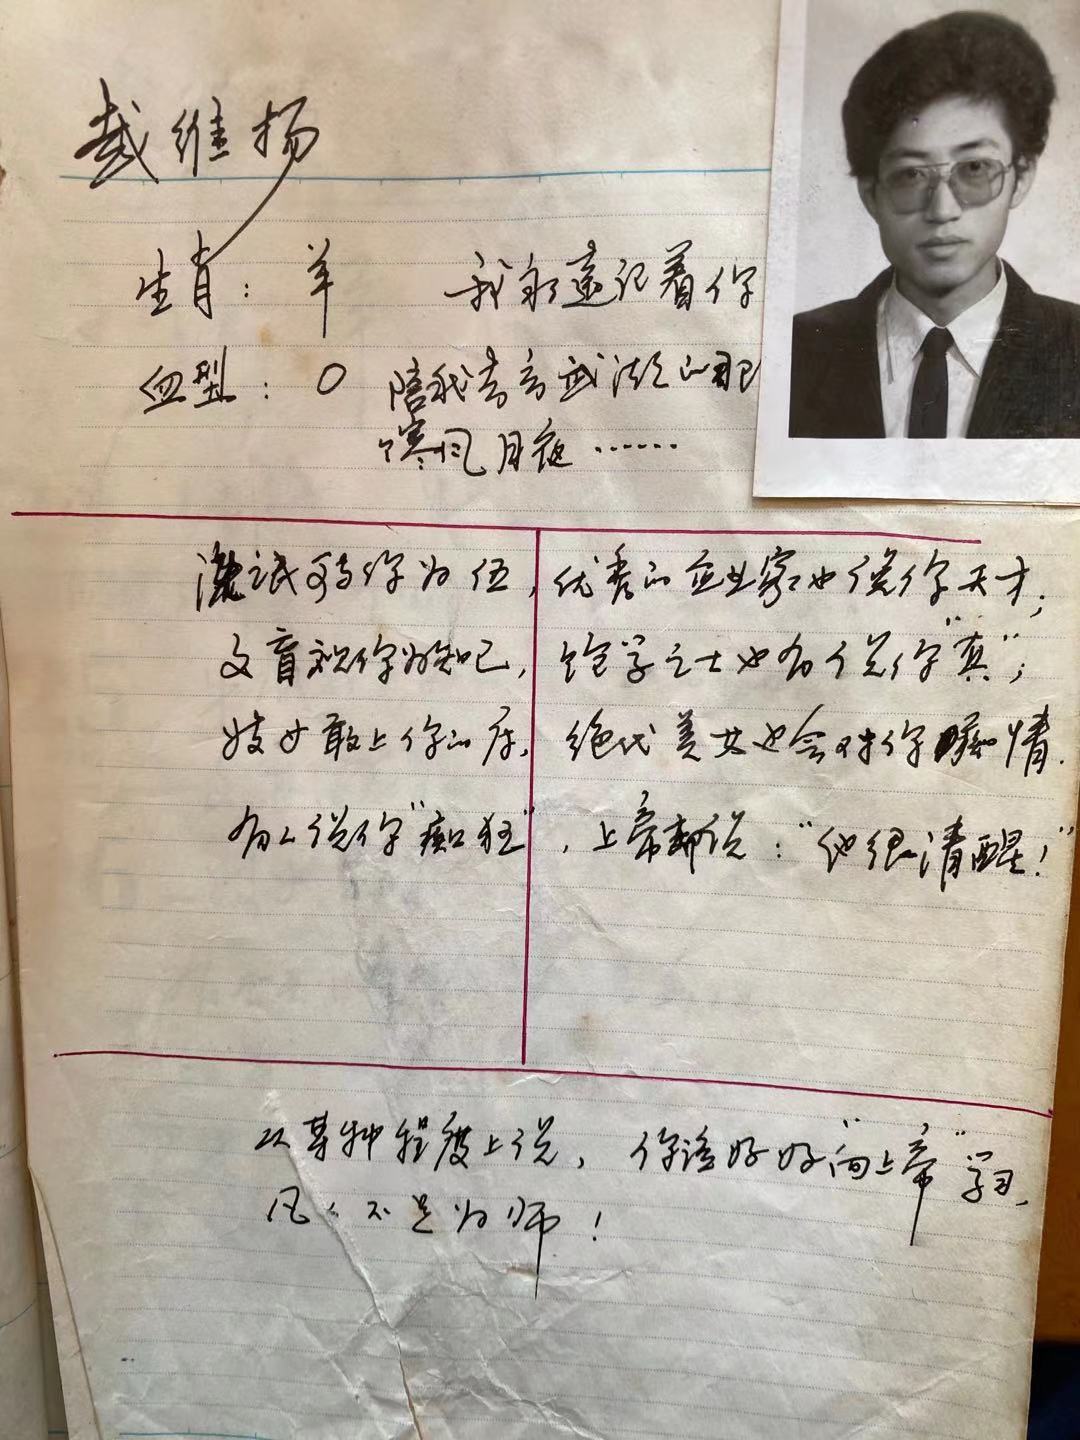 戴维扬
生肖：羊 我永远记着你
血型：O 陪我去玄武湖的那
个寒风月夜……
流氓可与你为伍，优秀的企业家也说你天才；
文盲视你为知己，饱学之士也有说你"真"；
妓女敢上你的床，绝代美女也会对你痴情.
有人说你"痴狂"，上帝却说："他很清醒！"
从某种程度上说，你该好好"向上帝"学习，
凡人不足为师！